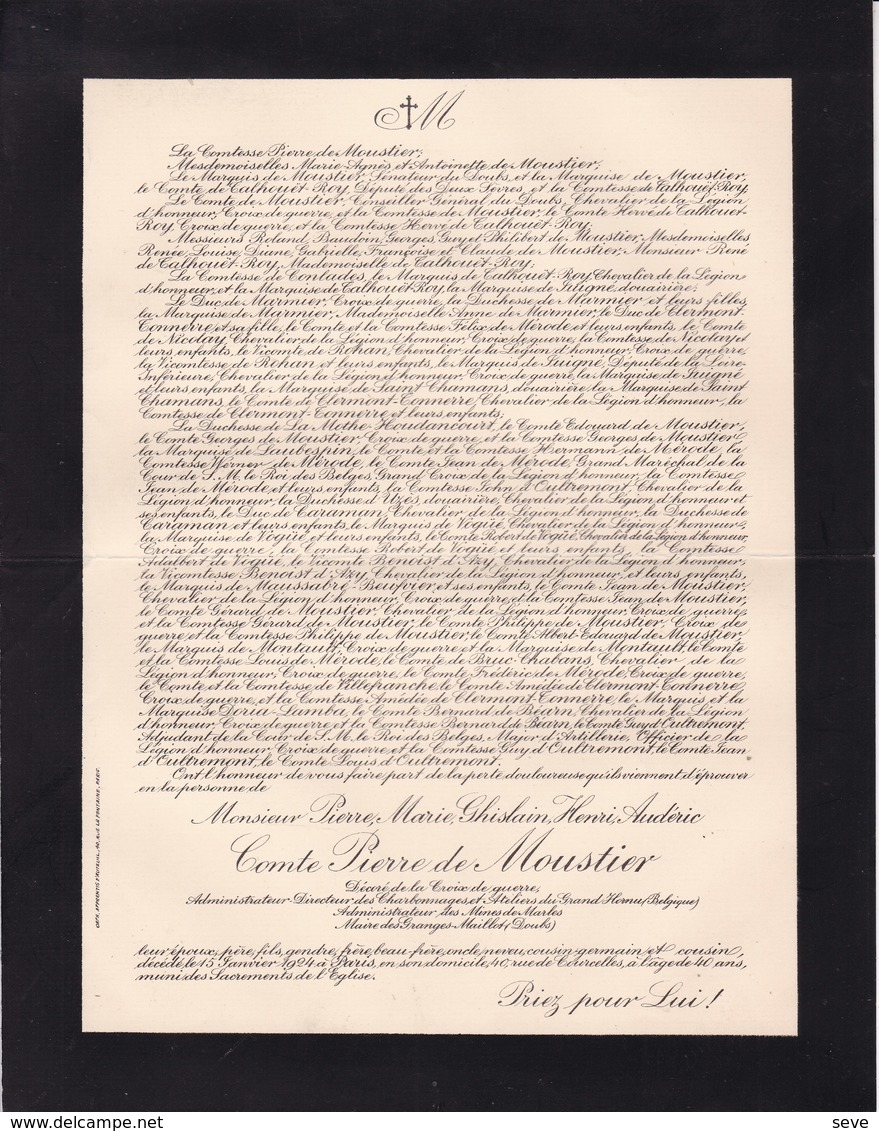 M
La Comtesse Pierre de Moustier,
Mesdemoiselles Marie-Agnès et Antoinette de Moustier,
Le Marquis de Moustier, Sénateur du Doubs, et la Marquise de Moustier,
le Comte de Talhouët-Roy, Député des Deux Sèvres, et la Comtesse de Talhouët-Roy,
Le Comte de Moustier, Conseiller Général du Doubs, Chevalier de la Légion
d'honneur, Croix de guerre, et la Comtesse de Moustier, le Comte Hervé de Talhouët-
Roy, Croix de guerre, et la Comtesse Hervé de Talhouët-Roy,
Messieurs Roland, Baudoin, Georges, Guy et Philibert de Moustier, Mesdemoiselles
Renée, Louise, Diane, Gabrielle, Françoise et Claude de Moustier, Monsieur René
de Talhouët-Roy, Mademoiselle de Talhouët-Roy,
La Comtesse de Contades, le Marquis de Talhouët-Roy, Chevalier de la Légion
d'honneur, et la Marquise de Talhouët-Roy, la Marquise de Juigné, douairière;
Le Duc de Marmier, Croix de guerre, la Duchesse de Marmier et leurs filles,
la Marquise de Marmier, Mademoiselle Anne de Marmier, le Duc de Clermont-
Tonnerre, et sa fille, le Comte et la Comtesse Félix de Mérode et leurs enfants, le Comte
de Nicolay, Chevalier de la Légion d'honneur, Croix de guerre, la Comtesse de Nicolay et
leurs enfants, le Vicomte de Rohan, Chevalier de la Légion d'honneur, Croix de guerre,
la Vicomtesse de Rohan et leurs enfants, le Marquis de Juigné, Député de la Loire-
Inférieure, Chevalier de la Légion d'honneur, Croix de guerre, la Marquise de Juigné
et leurs enfants, la Marquise de Saint Chamans, douairière, la Marquise de Saint
Chamans, le Comte de Clermont-Tonnerre, Chevalier de la Légion d'honneur, la
Comtesse de Clermont-Tonnerre et leurs enfants;
La Duchesse de La Mothe-Houdancourt, le Comte Edouard de Moustier,
le Comte Georges de Moustier, Croix de guerre, et la Comtesse Georges de Moustier,
la Marquise de Laubespin, le Comte et la Comtesse Hermann de Mérode, la
Comtesse Werner de Mérode, le Comte Jean de Mérode, Grand Maréchal de la
Cour de S.M. le Roi des Belges, Grand Croix de la Légion d'honneur, la Comtesse
Jean de Mérode et leurs enfants, la Comtesse John d'Oultremont, Chevalier de la
Légion d'honneur, la Duchesse d'Uzès, douairière, Chevalier de la Légion d'honneur et
ses enfants, le Duc de Caraman, Chevalier de la Légion d'honneur, la Duchesse de
Caraman et leurs enfants, le Marquis de Vogüé, Chevalier de la Légion d'honneur,
la Marquise de Vogüé et leurs enfants, le Comte Robert de Vogüé, Chevalier de la Légion d'honneur,
Croix de guerre, la Comtesse Robert de Vogüé et leurs enfants, la Comtesse
Adalbert de Vogüé, le Vicomte Benoist d'Azy, Chevalier de la Légion d'honneur,
la Vicomtesse Benoist d'Azy, Chevalier de la Légion d'honneur, et leurs enfants,
le Marquis de Moussabré-Beufvier, et ses enfants, le Comte Jean de Moustier,
Chevalier de la Légion d'honneur, Croix de guerre, et la Comtesse Jean de Moustier,
le Comte Gérard de Moustier, Chevalier de la Légion d'honneur, Croix de guerre
et la Comtesse Gérard de Moustier, le Comte Philippe de Moustier, Croix de
guerre et la Comtesse Philippe de Moustier, le Comte Albert-Edouard de Moustier,
le Marquis de Montault, Croix de guerre et la Marquise de Montault, le Comte
et la Comtesse Louis de Mérode, le Comte de Bruc-Chabans, Chevalier de la
Légion d'honneur, Croix de guerre, le Comte Frédéric de Mérode, Croix de guerre,
le Comte et la Comtesse de Villefranche, le Comte Amédée de Clermont-Tonnerre,
Croix de guerre, et la Comtesse Amédée de Clermont-Tonnerre, le Marquis et la
Marquise Doria-Lamba, le Comte Bernard de Béarn, Chevalier de la Légion
d'honneur, Croix de guerre et la Comtesse Bernard de Béarn, le Comte Guy d'Oultremont,
Adjudant de la Cour de S.M. le Roi des Belges, Major d'Artillerie, Officier de la
Légion d'honneur, Croix de guerre et la Comtesse Guy d'Oultremont, le Comte Jean
d'Oultremont, le Comte Louis d'Oultremont.
Ont l'honneur de vous faire part de la perte douloureuse qu'ils viennent d'éprouver
en la personne de
Monsieur Pierre, Marie, Ghislain, Henri, Audéric
Comte Pierre de Moustier
Décoré de la Croix de guerre,
Administrateur-Directeur des Charbonnages et Ateliers du Grand Hornu (Belgique)
Administrateur des Mines de Marles
Maire des Granges-Maillot, (Doubs)
leur époux, père, fils, gendre, frère, beau-frère, oncle, neveu, cousin-germain et cousin,
décédé, le 15 Janvier 1924 à Paris, en son domicile, 40, rue de Courcelles, à l'âge de 40 ans,
muni des Sacrements de l'Eglise.
Priez pour Lui!
ORPH. APPRENTIS D'AUTEUIL, 40, RUE LA FONTAINE, PARIS.
seve